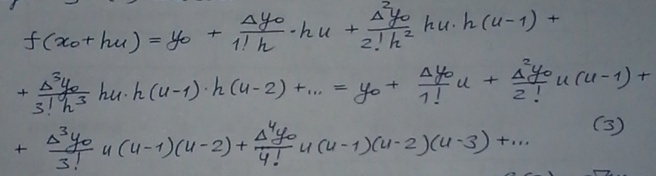 f(x₀+hu) = y₀ + Δy₀/1!h · hu + Δ²y₀/2!h² hu·h(u-1) +
+ Δ³y₀/3!h³ hu·h(u-1)·h(u-2) +... = y₀ + Δy₀/1! u + Δ²y₀/2! u(u-1) +
+ Δ³y₀/3! u(u-1)(u-2) + Δ⁴y₀/4! u(u-1)(u-2)(u-3) +... (3)